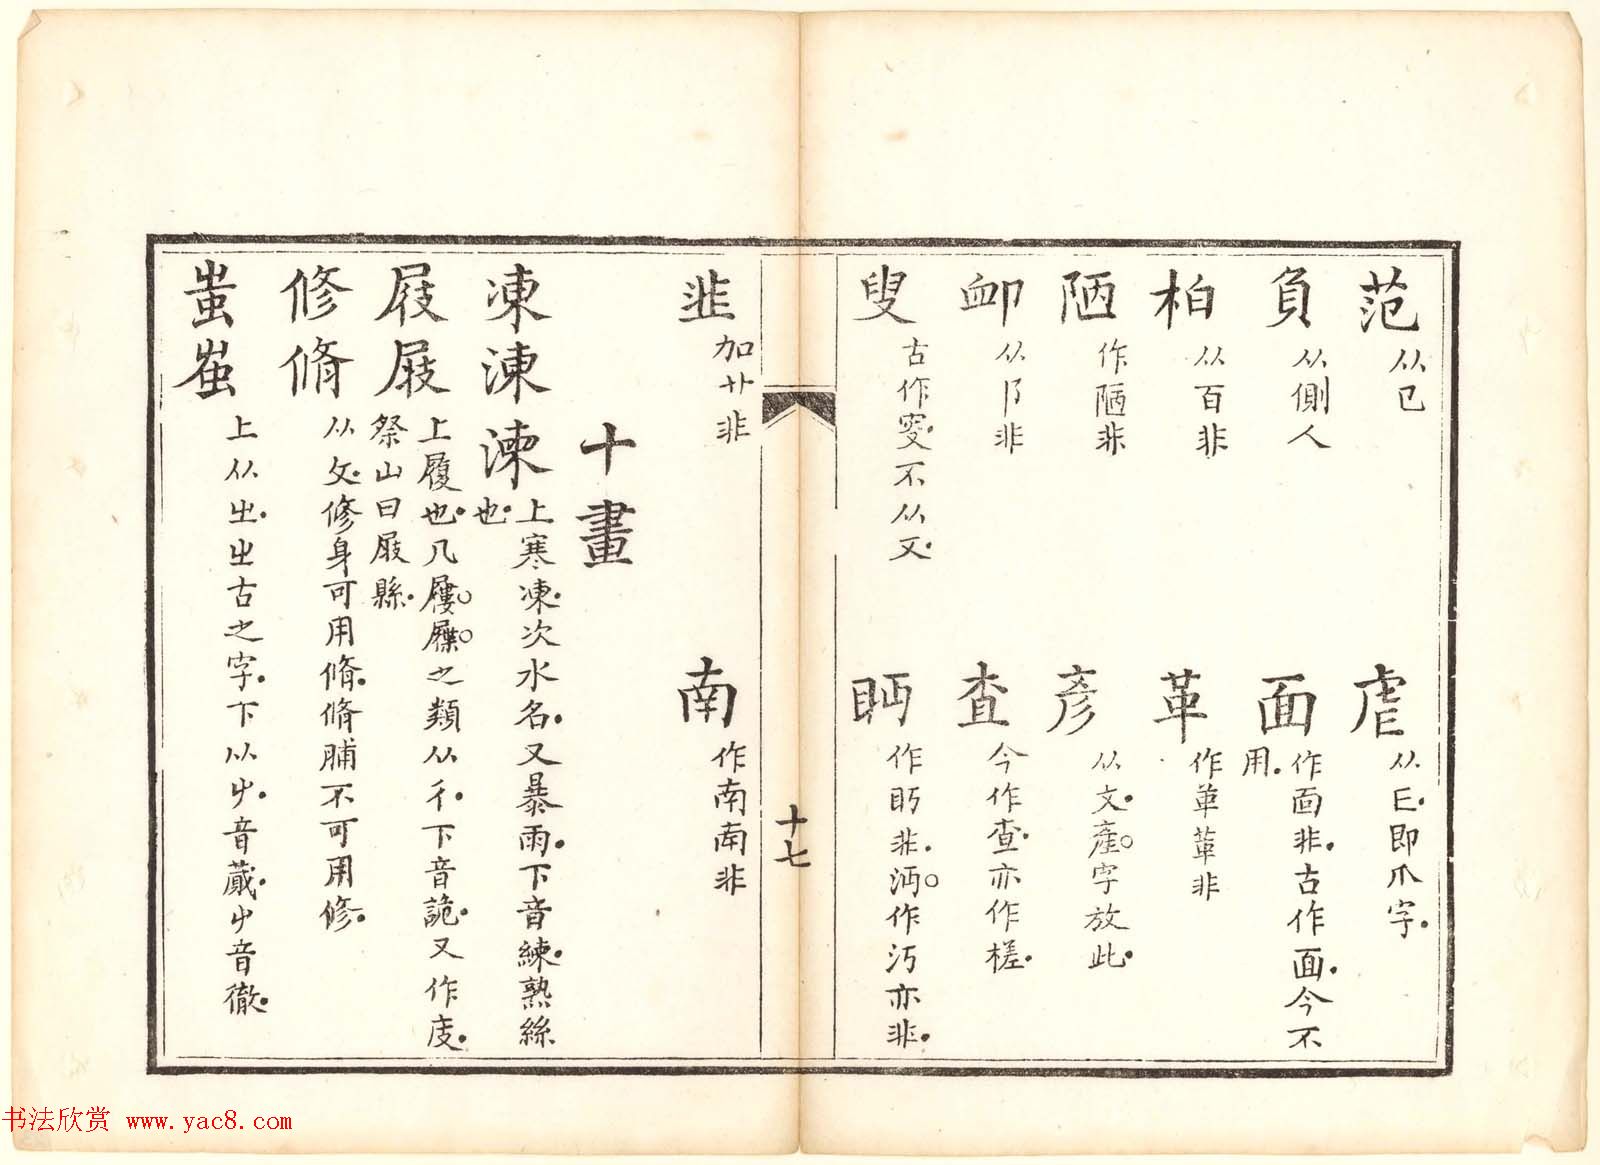 范 从㔾
虐 从𠂎即爪字
負 从側人
面 作靣非古作面今不用
柏 从百非
革 作革革非
陋 作陋非
彥 从文產字放此
卹 从卩非
查 今作查亦作槎
叟 古作叜不从又
眄 作眄非沔作沔亦非
十七
韭 加艹非
南 作南南非
十畫
凍涷湅 上寒凍次水名又暴雨下音練熟絲也
屐屐 上履也凡屨屧之類从彳下音詭又作庋祭山曰屐縣
修脩 从攵修身可用脩脩脯不可用修
蚩蚩 上从㞢㞢古之字下以屮音蕆屮音徹
书法欣赏 www.yac8.com